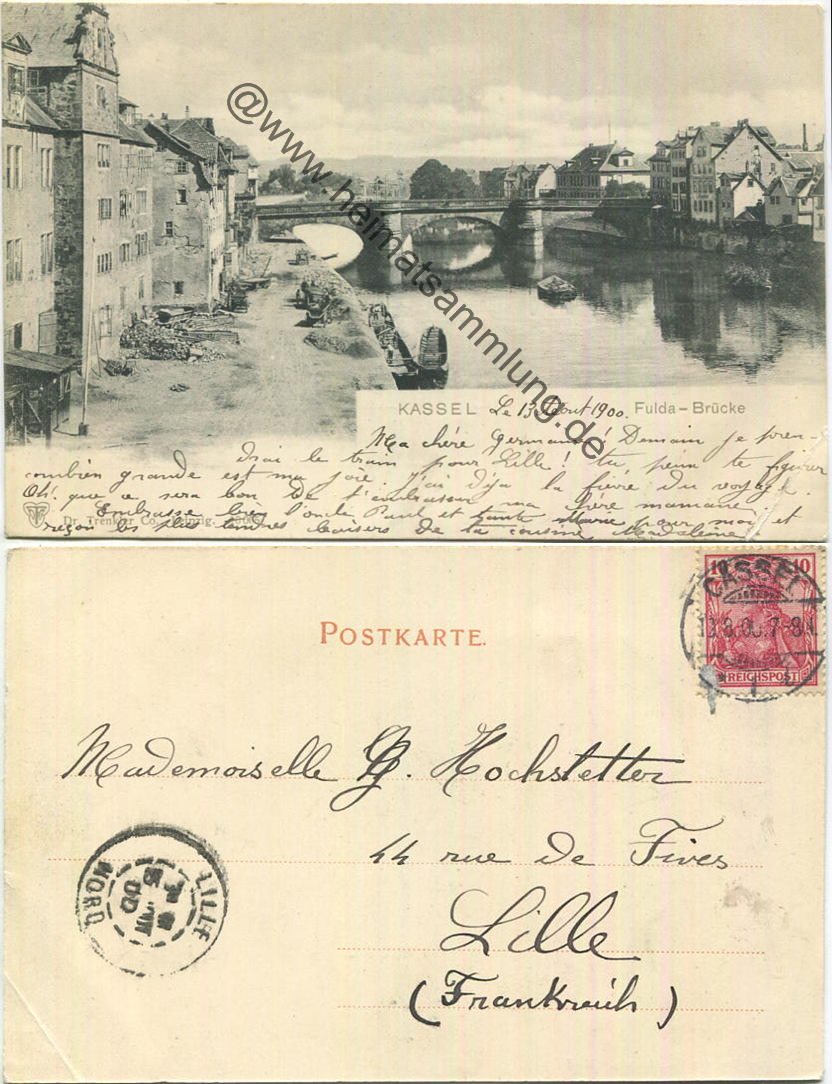 @www.heimatsammlung.de
KASSEL Le 13 Août 1900. Fulda-Brücke
Ma chère Germaine! Demain je pren-
drai le train pour Lille! tu peux te figurer
combien grande est ma joie. j'ai déja la fièvre du voyage.
Oh! que ce sera bon de t'embrasser ma chère mamane.
Embrasse bien l'oncle Paul et tante Marie pour moi et
Dr. Trenkler Co., Leipzig.
reçois les plus tendres baisers de ta cousine Madeleine.
POSTKARTE.
CASSEL
13.8.00.7-8
* 1
10 10
REICHSPOST
Mademoiselle G. Hochstetter
44 rue de Fives
Lille
(Frankreich)
LILLE
NORD